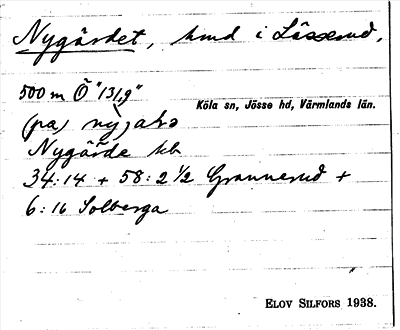 Nygärdet, hmd i Låsserud.
500 m Ö "131,9"
Köla sn, Jösse hd, Värmlands län.
(pa)
Nygärde kb
34:14 + 58:2 1/2 Grannerud +
6:16 Solberga
ELOV SILFORS 1938.